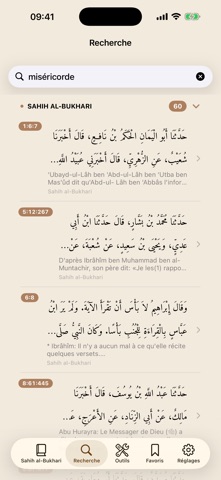 09:41
Recherche
miséricorde
SAHIH AL-BUKHARI
60
1:6:7
حَدَّثَنَا أَبُو الْيَمَانِ الْحَكَمُ بْنُ نَافِعٍ، قَالَ أَخْبَرَنَا
شُعَيْبٌ، عَنِ الزُّهْرِيِّ، قَالَ أَخْبَرَنِي عُبَيْدُ اللَّهِ...
'Ubayd-ul-Lâh ben 'Abd-ul-Lâh ben 'Utba ben
Mas'ûd dit qu'Abd-ul- Lâh ben 'Abbâs l'infor...
Sahih al-Bukhari
5:12:267
حَدَّثَنَا مُحَمَّدُ بْنُ بَشَّارٍ، قَالَ حَدَّثَنَا ابْنُ أَبِي
عَدِيٍّ، وَيَحْيَى بْنُ سَعِيدٍ، عَنْ شُعْبَةَ، عَنْ...
D'après Ibrâhîm ben Muhammad ben al-
Muntachir, son père dit: «Je les(1) rappo...
Sahih al-Bukhari
6:8
وَقَالَ إِبْرَاهِيمُ لاَ بَأْسَ أَنْ تَقْرَأَ الآيَةَ. وَلَمْ يَرَ ابْنُ
عَبَّاسٍ بِالْقِرَاءَةِ لِلْجُنُبِ بَأْسًا. وَكَانَ النَّبِيُّ صلى...
* Ibrâhîm: Il n'y a aucun mal à ce qu'elle récite
quelques versets....
Sahih al-Bukhari
8:61:445
حَدَّثَنَا عَبْدُ اللَّهِ بْنُ يُوسُفَ، قَالَ أَخْبَرَنَا
مَالِكٌ، عَنْ أَبِي الزِّنَادِ، عَنِ الأَعْرَجِ، عَنْ...
Abu Hurayra: Le Messager de Dieu (ﷺ) a
Sahih al-Bukhari
Recherche
Outils
Favoris
Réglages